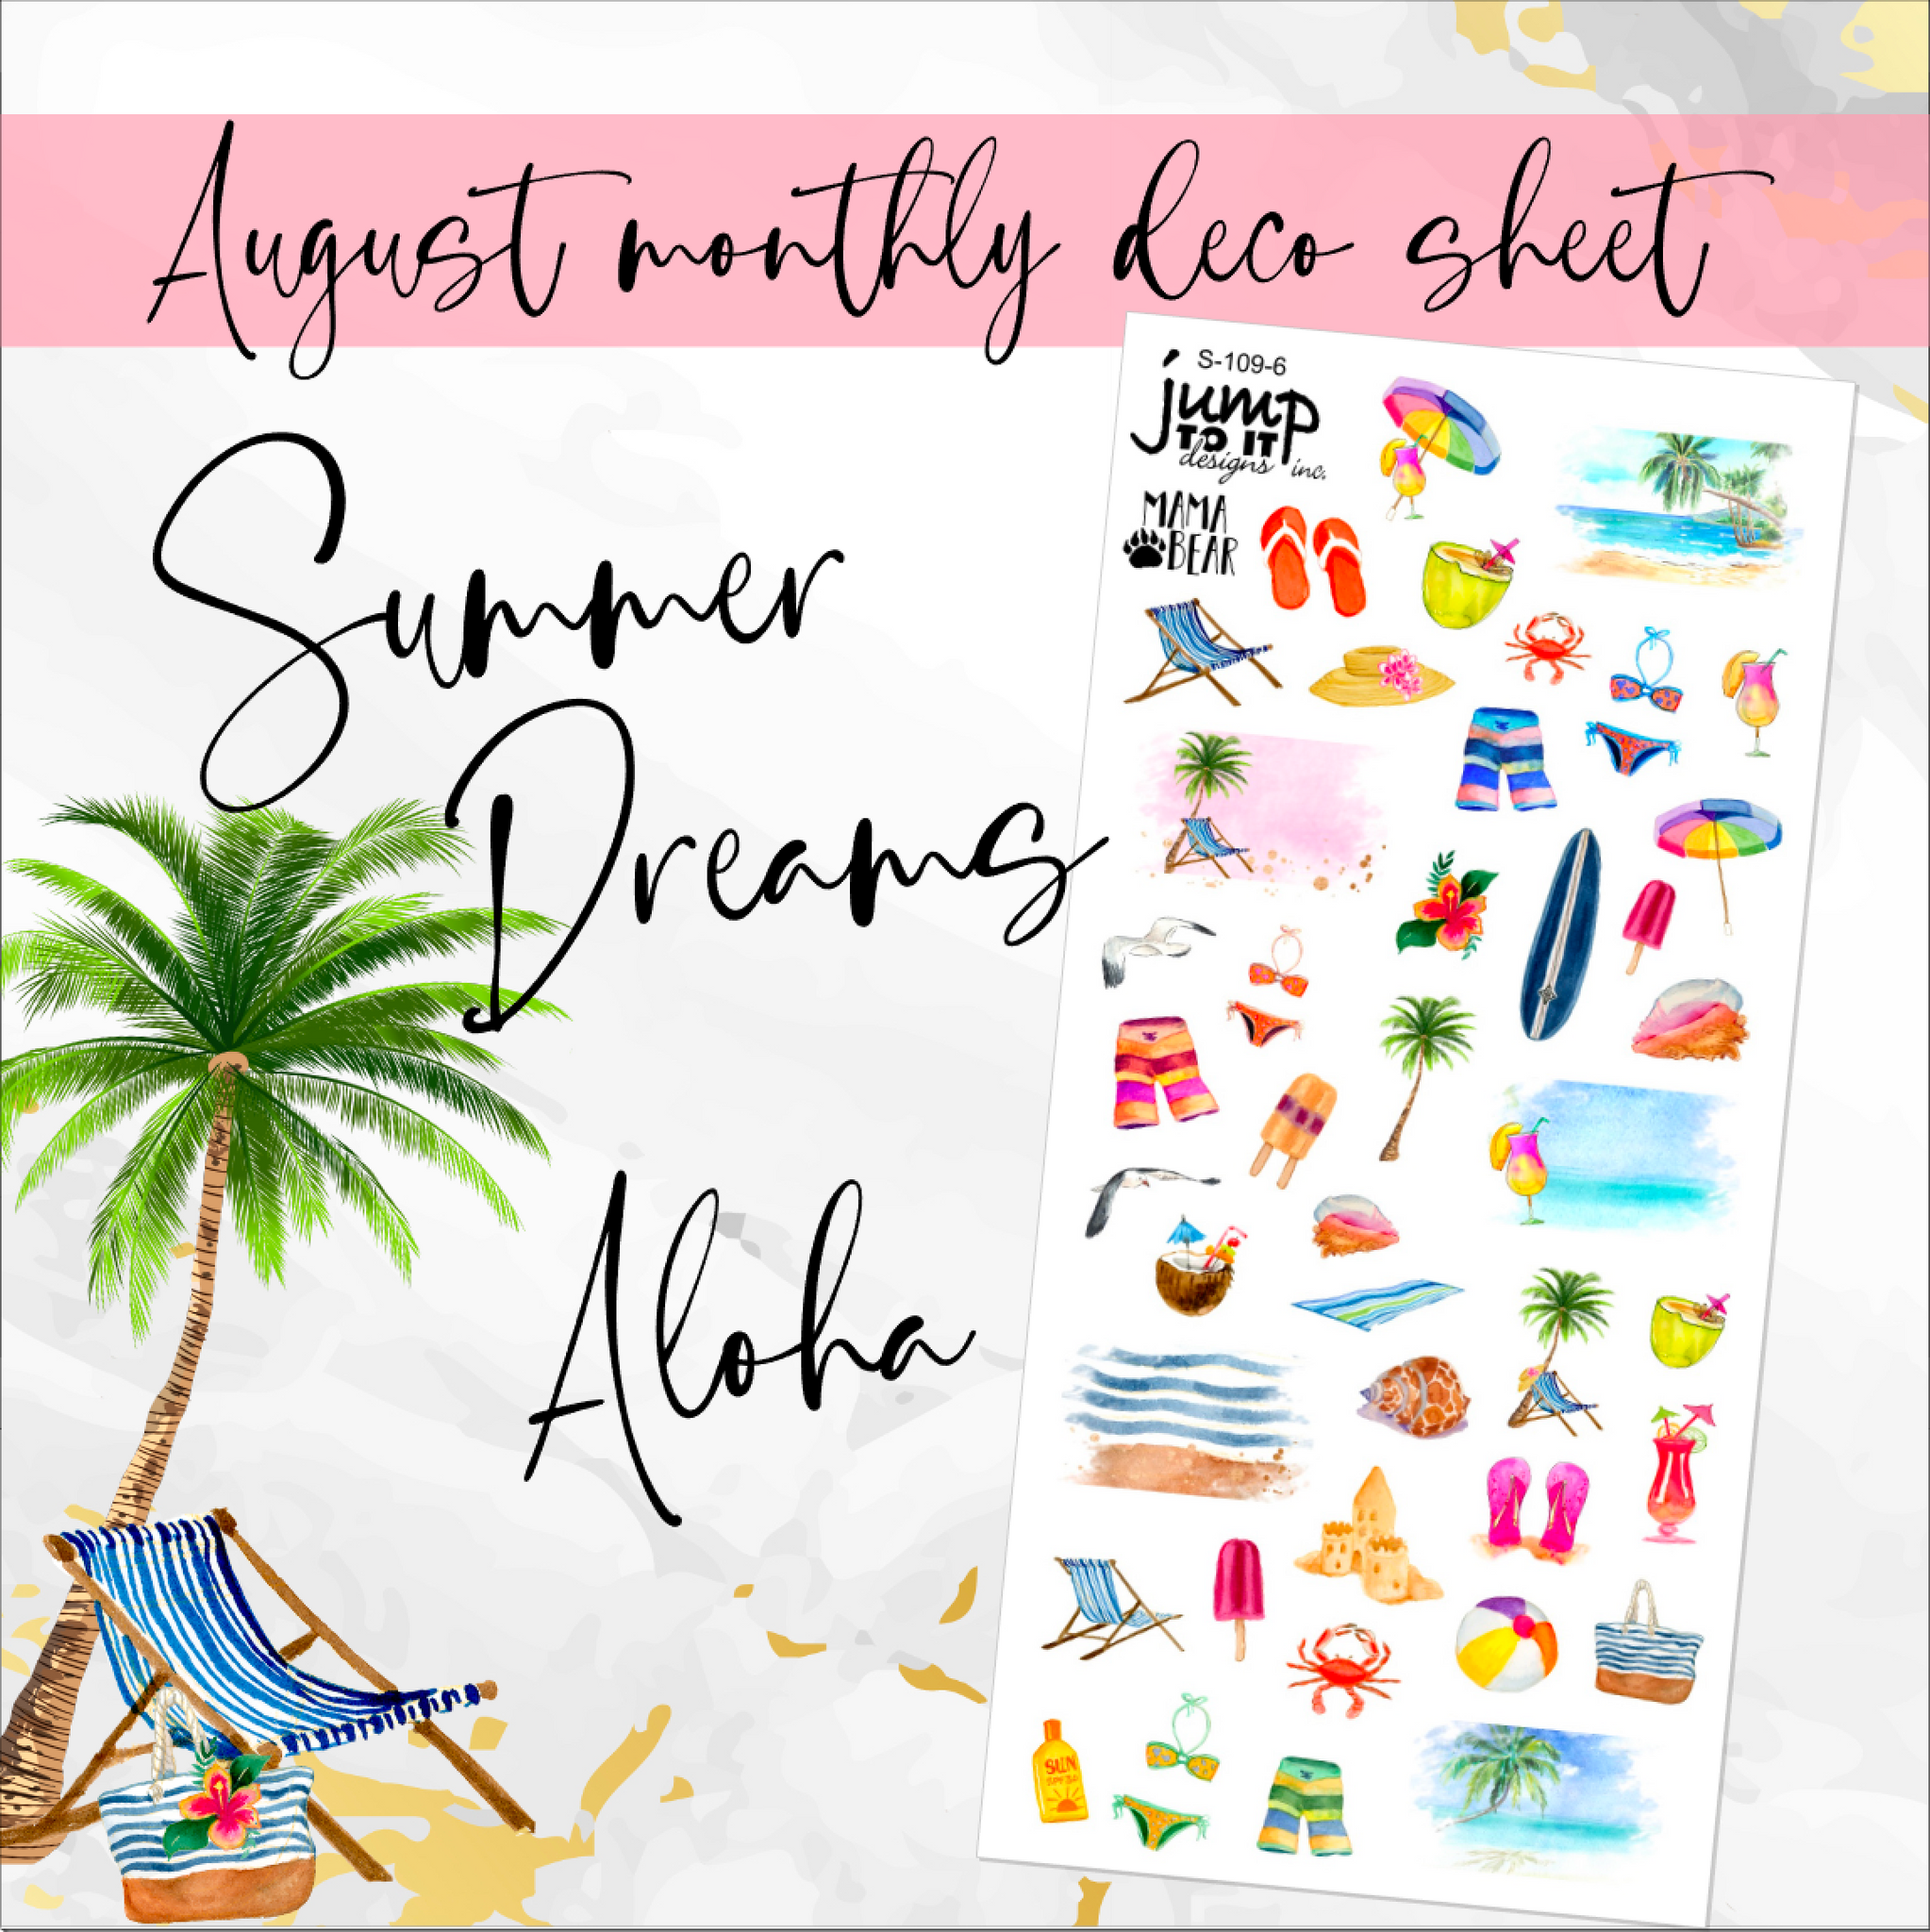 August monthly deco sheet
S-109-6
jump
TO IT
designs inc.
MAMA
BEAR
Summer
Dreams
Aloha
SUN
SPF 30